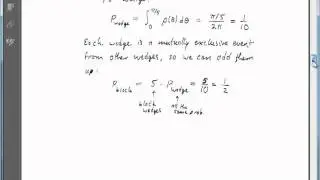 P_wedge = ∫₀^{π/5} ρ(θ) dθ = (π/5)/(2π) = 1/10
Each wedge is a mutually exclusive event
from other wedges, so we can add them
up.
P_black = 5 · P_wedge = 5/10 = 1/2
black
wedges
same prob.